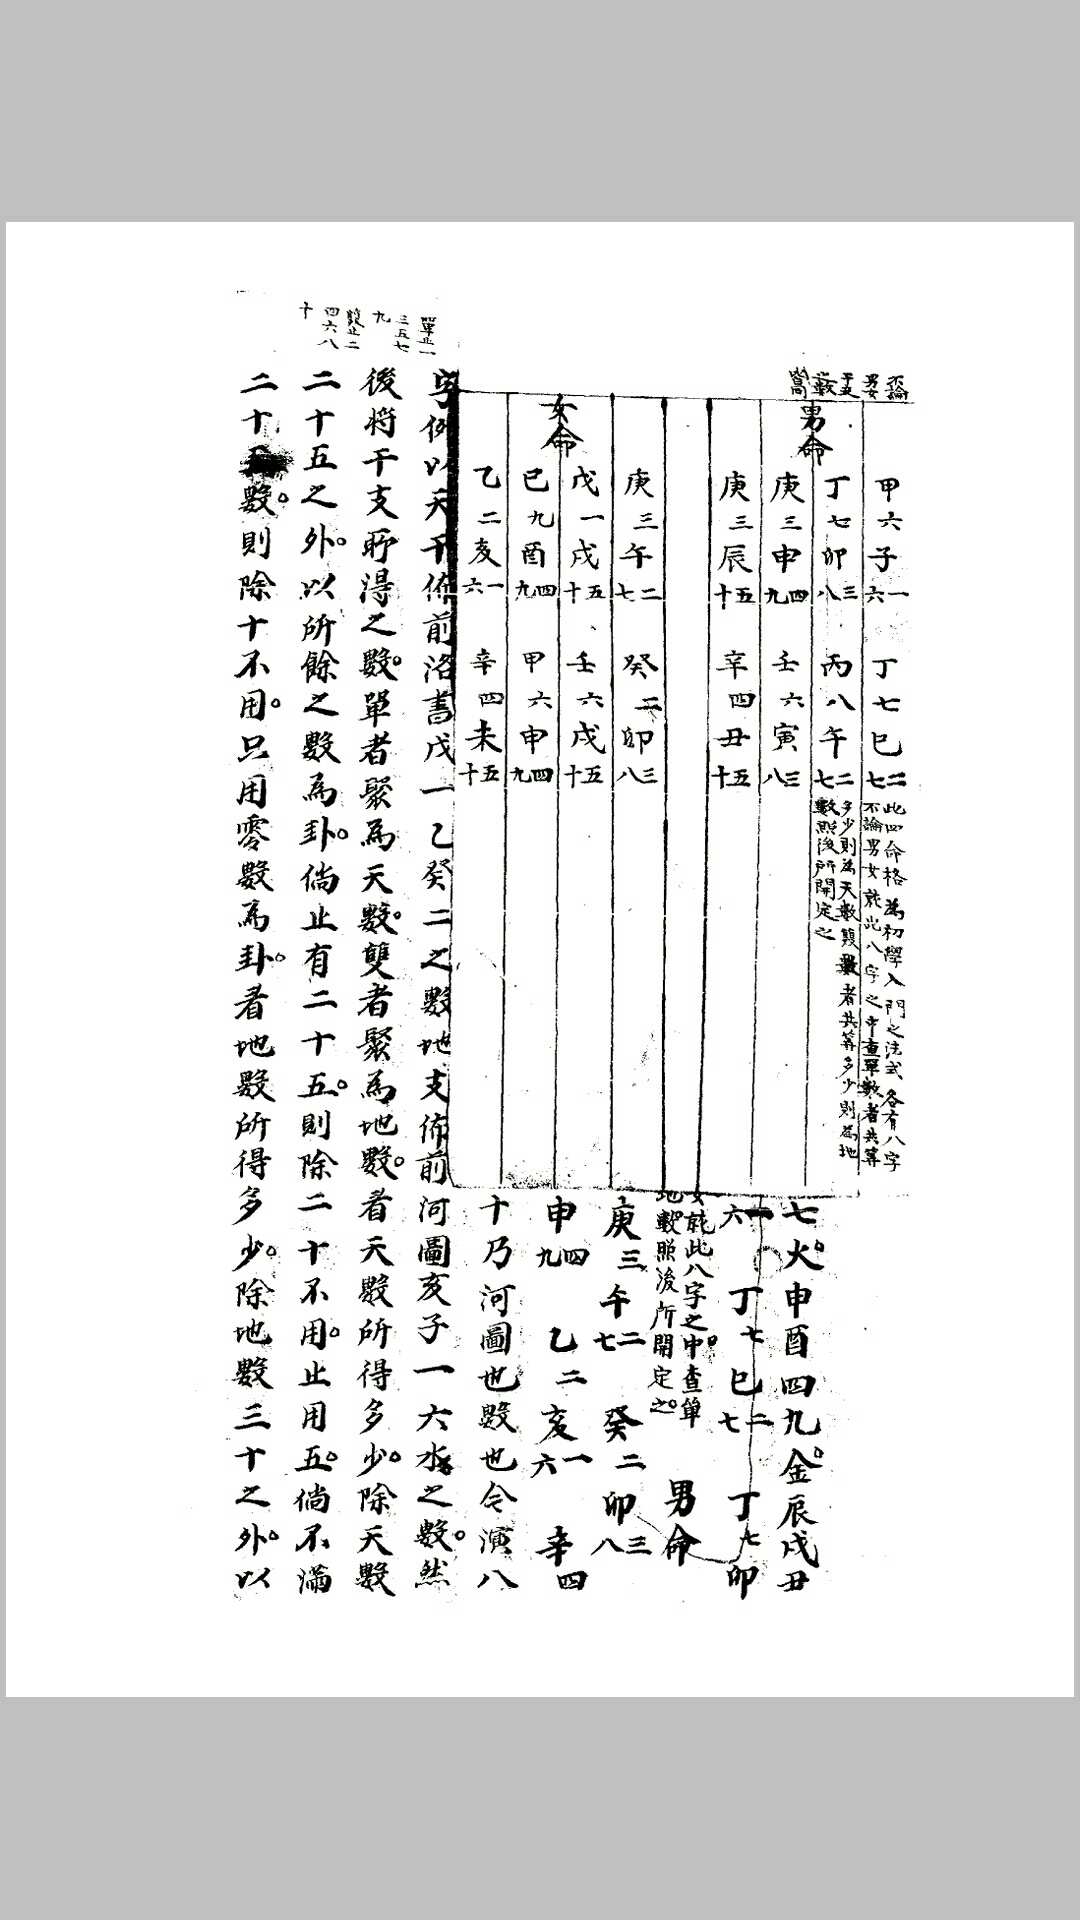 不論
男女
干支
甲六子一六 丁七巳二七
此四命格為初學入門之法式各有八字
不論男女就此八字之中查單數者共算
多少則為天數雙數者共算多少則為地
數照後所開定之
男命
丁七卯三八 丙八午二七
庚三申四九 壬六寅三八
庚三辰五十 辛四丑五十
庚三午二七 癸二卯三八
女命
戊一戌五十 壬六戌五十
己九酉四九 甲六申四九
乙二亥一六 辛四未五十
七火。申酉四九金。辰戌丑
一六 丁七巳二七 丁七卯
女就此八字之中。查單
地數照後所開定之。
男命
庚三午二七 癸二卯三八
申四九 乙二亥一六 辛四
十乃河圖也數也今演八
單止一
三五七
九
雙止二
四六八
十
字例以天干依前洛書戊一乙癸二之數地支依前河圖亥子一六水之數。然
後將干支所得之數。單者聚為天數。雙者聚為地數。看天數所得多少。除天數
二十五之外。以所餘之數為卦。倘止有二十五。則除二十不用。止用五。倘不滿
二十五數。則除十不用。只用零數為卦。看地數所得多少。除地數三十之外。以